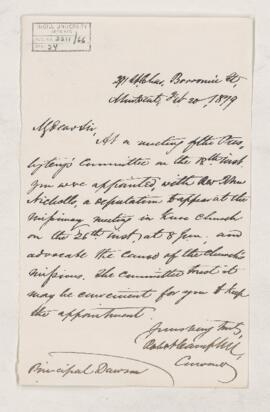 McGILL UNIVERSITY
ARCHIVES
ACC. NO. 2211/66
REF. 24
Montreal, Feb 20, 1879
My dear Sir,
At a meeting of the Pres-
bytery's Committee on the 18th inst
you were appointed with Rev John
Nichols, a deputation to appear at the
missionary meeting in Knox Church
on the 26th inst, at 8 p.m. and
advocate the cause of the Church's
missions. The Committee trust it
may be convenient for you to keep
the appointment.
Yours very truly,
Robt Campbell
Convener
Principal Dawson